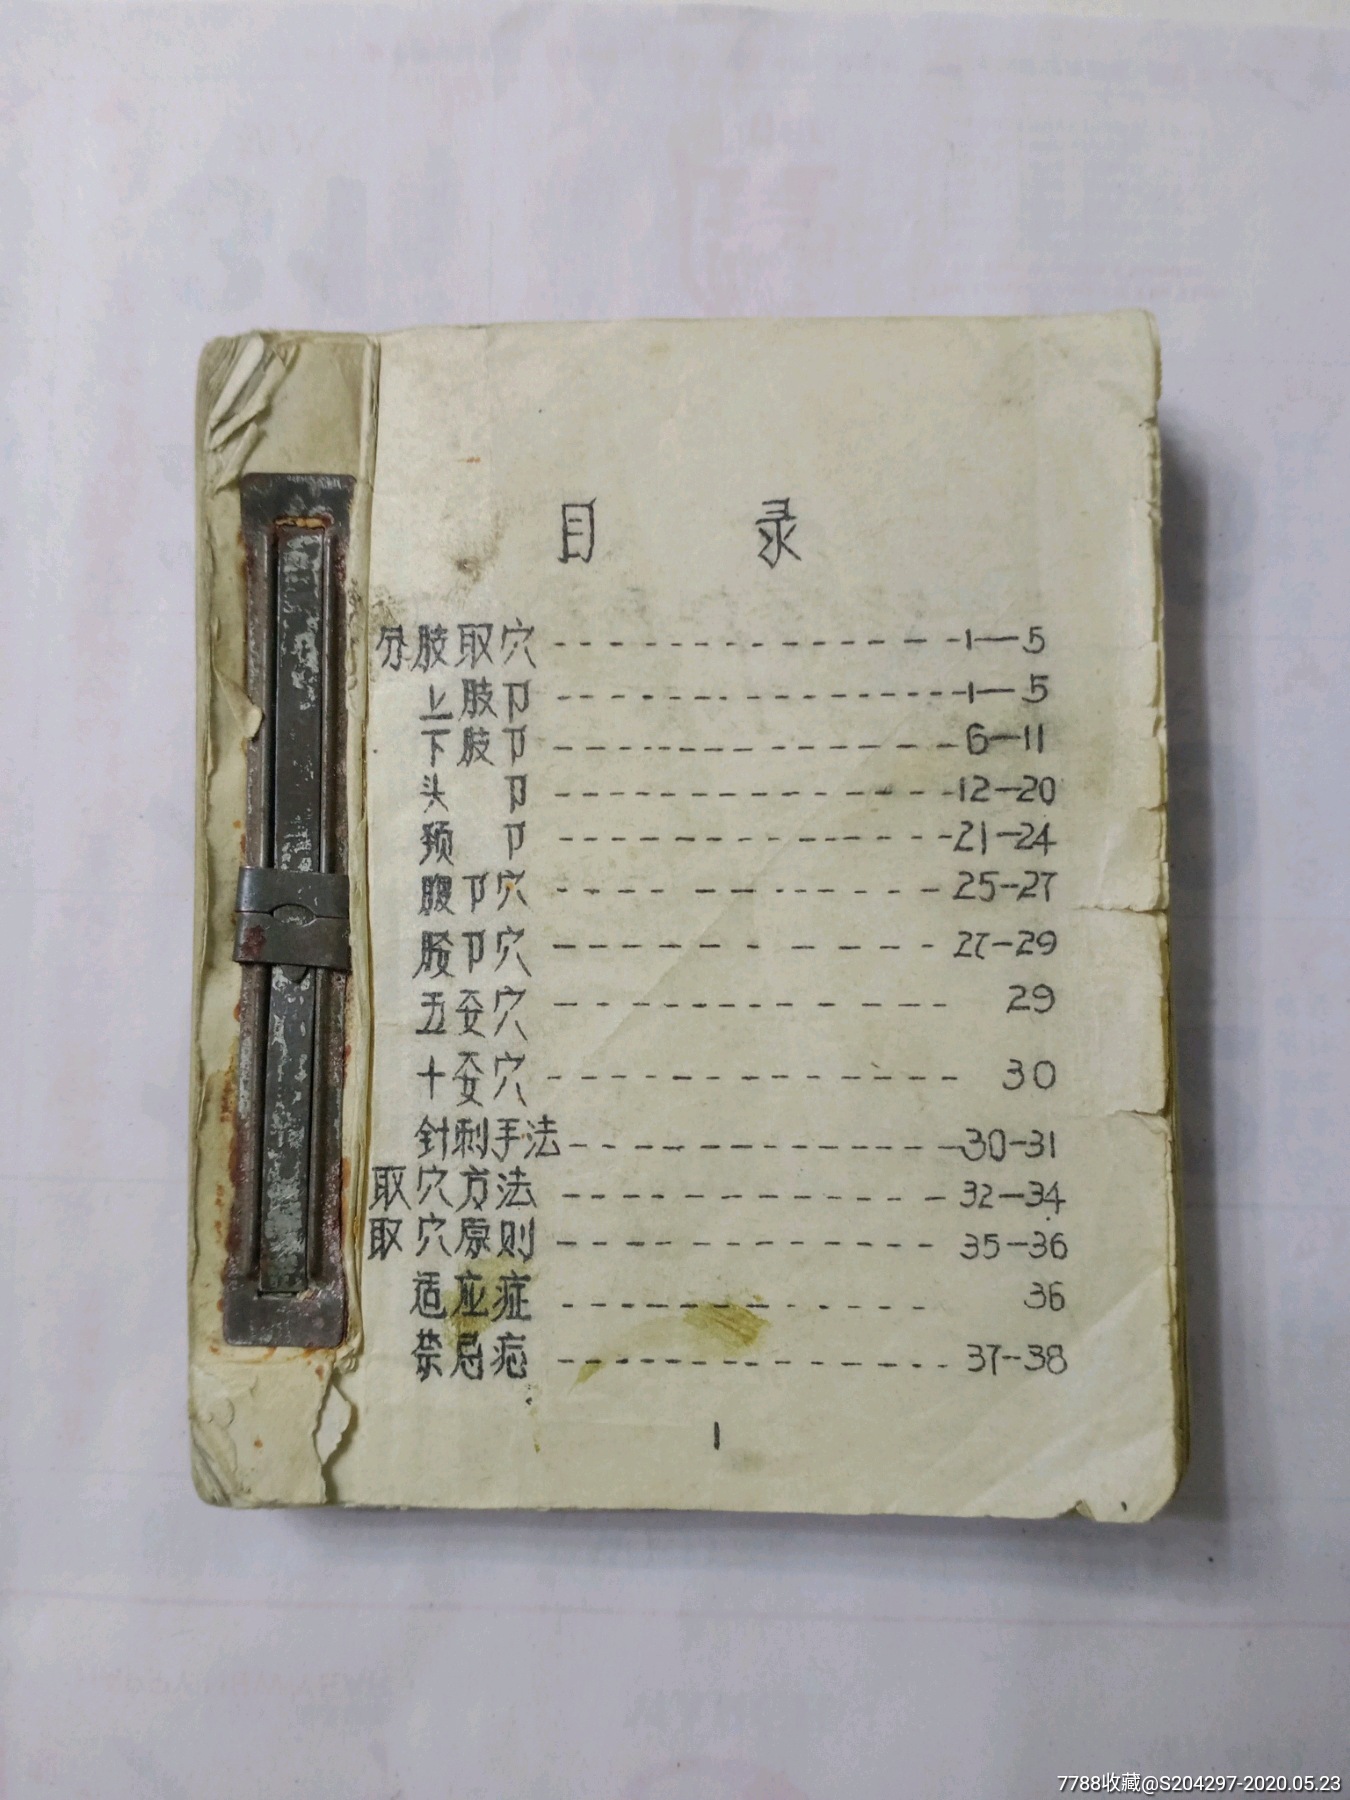 目 录
分肢取穴 1—5
上肢卩 1—5
下肢卩 6—11
头 卩 12—20
颈 卩 21—24
腹卩穴 25—27
卩穴 27—29
五 穴 29
十 穴 30
针刺手法 30—31
取穴方法 32—34
取穴原则 35—36
适应症 36
禁忌 37—38
1
7788收藏@S204297-2020.05.23